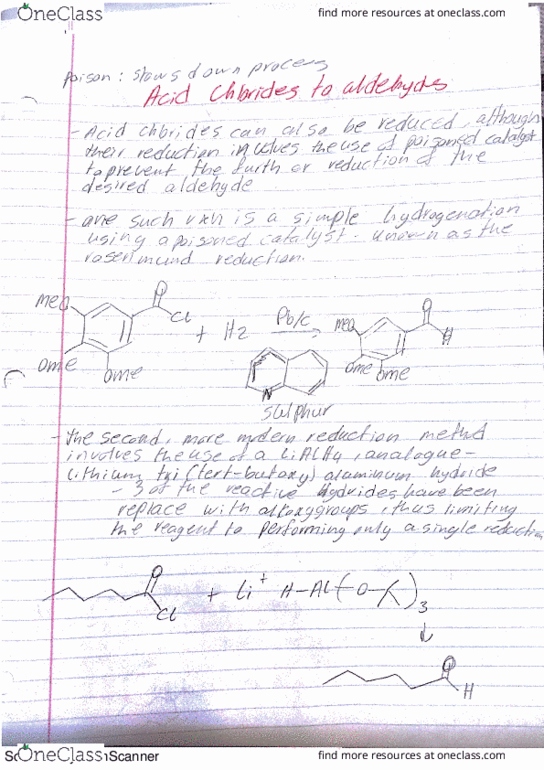 OneClass find more resources at oneclass.com
poison: slows down process
Acid Chlorides to aldehydes
- Acid chlorides can also be reduced, although
their reduction involves the use of poisoned catalyst
to prevent the further reduction of the
desired aldehyde
- one such rxn is a simple hydrogenation
using a poisoned catalyst. known as the
rosenmund reduction.
MeO O Cl + H2 Pb/c MeO O H
OMe OMe OMe OMe
N
sulphur
- the second, more modern reduction method
involves the use of a LiAlH4, analogue-
Lithium tri(tert-butoxy) aluminum hydride
- 3 of the reactive hydrides have been
replace with alkoxygroups, thus limiting
the reagent to performing only a single reduction
O Cl + Li+ H-Al(O-)3
O H
OneClass Scanner find more resources at oneclass.com